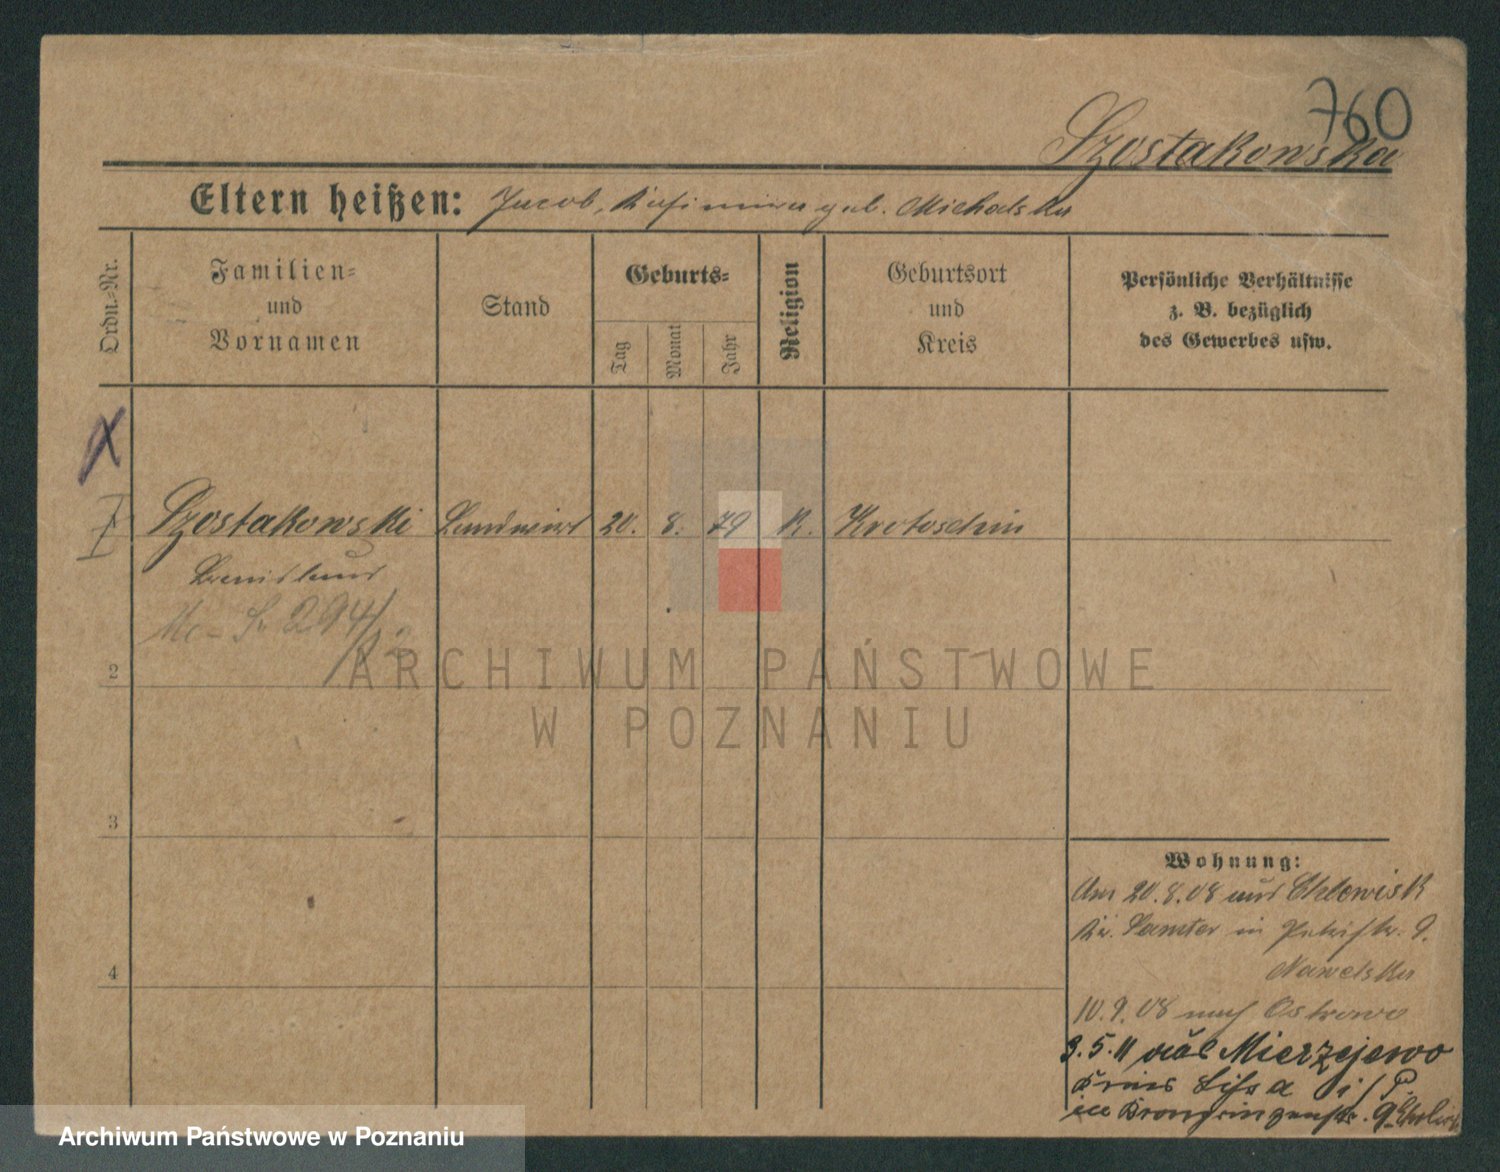 760
Szostakowska
Eltern heißen: Jacob, Kasimira geb. Michalska
Ordn.-Nr.
Familien-
und
Vornamen
Stand
Geburts-
Tag
Monat
Jahr
Religion
Geburtsort
und
Kreis
Persönliche Verhältnisse
z. B. bezüglich
des Gewerbes usw.
Szostakowski Landwirt 20. 8. 79 K. Krotoschin
294/
2
3
4
Wohnung:
Am 20.8.08 aus Chlewisk
Kr. Samter in Petristr. 9.
Nawelska
10.9.08 nach Ostrowo
3.5.11 aus Mierzejewo
Kreis Lissa i/P.
in Kronprinzenstr.
ARCHIWUM PAŃSTWOWE
W POZNANIU
Archiwum Państwowe w Poznaniu